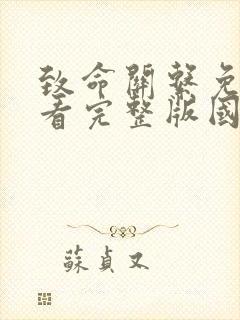 致命關繫免
看完整版國
蘇貞又